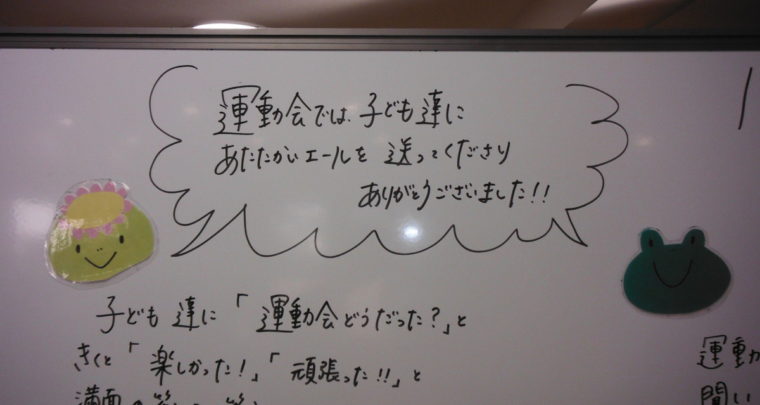 運動会では、子ども達に
あたたかいエールを 送ってくださり
ありがとうございました!!
子ども達に「運動会どうだった?」と
きくと「楽しかった!」「頑張った!!」と
満面の笑
運動
聞い